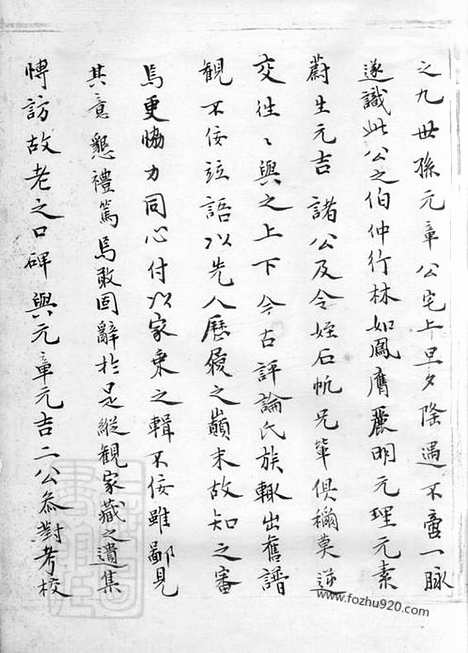 之九世孫元章公宅上旦夕隆遇不啻一脉
遂識此公之伯仲行林如鳳膺麗明元理元素
蔚生元吉諸公及令姪石帆兄軰俱稱莫逆
交徃〻與之上下今古評論氏族輙出舊譜
観不佞竝語以先人歷履之巔末故知之審
焉更恊力同心付以家乗之輯不佞雖鄙見
其意懇禮篤焉敢固辭於是縱観家藏之遺集
愽訪故老之口碑與元章元吉二公叅對考校
www.fozhu920.com